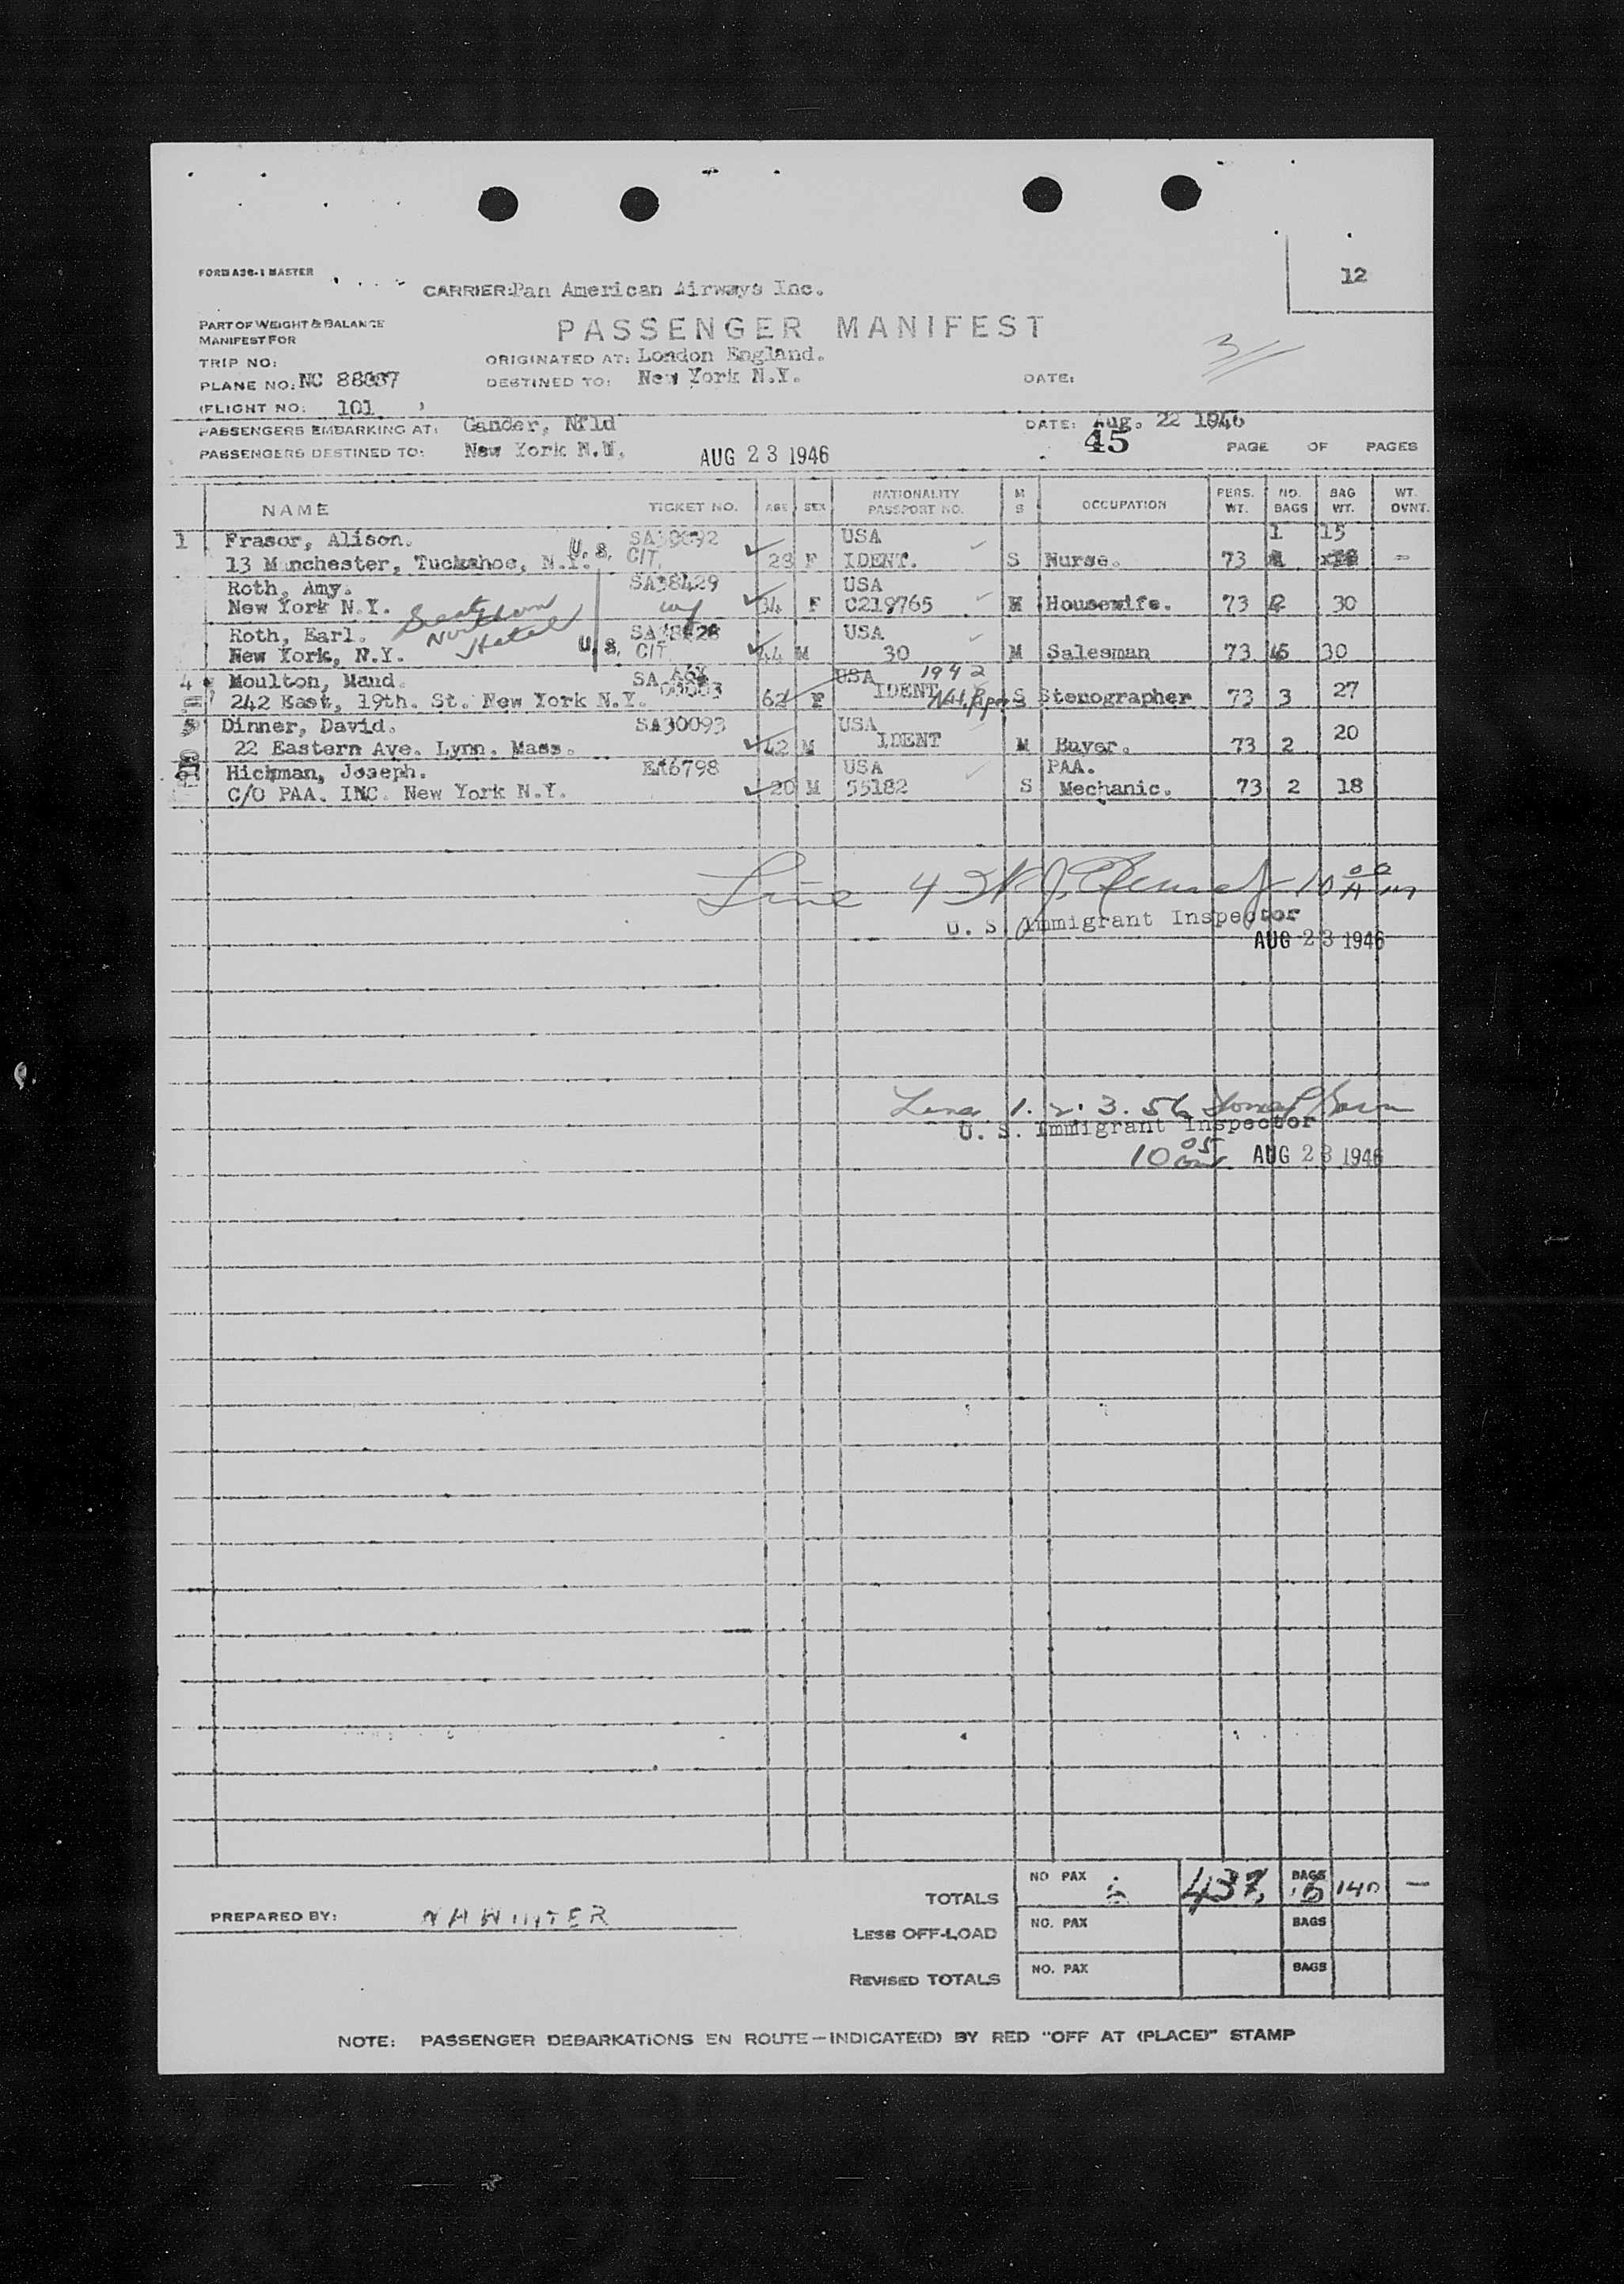 12
FORM A36-1 MASTER
CARRIER: Pan American Airways Inc.
PART OF WEIGHT & BALANCE
MANIFEST FOR
PASSENGER MANIFEST
TRIP NO:
ORIGINATED AT: London England.
PLANE NO: NC
DESTINED TO: New York N.Y.
DATE:
(FLIGHT NO: 101 )
PASSENGERS EMBARKING AT: Gander, Nfld
DATE: Aug. 22 1946
PASSENGERS DESTINED TO: New York N.Y.
AUG 23 1946
45
PAGE OF PAGES
NAME TICKET NO. AGE SEX NATIONALITY PASSPORT NO. M S OCCUPATION PERS. WT. NO. BAGS BAG WT. WT. OVNT.
1 Frasor, Alison. USA 1 15
13 Manchester, Tuckahoe, N.Y. U.S. CIT. F IDENT. S Nurse. 73
Roth, Amy. SA38429 USA
New York N.Y. F C219765 M Housewife. 73 30
Northern
Hotel
Roth, Earl. USA
New York, N.Y. U.S. CIT. 44 M 30 M Salesman 73 30
4 Moulton, Maud. SA USA 1942
242 East, 19th. St. New York N.Y. 62 F IDENT S Stenographer 73 3 27
Dinner, David. SA30093 USA 20
22 Eastern Ave. Lynn. Mass. 42 M IDENT M Buyer. 73 2
Hickman, Joseph. EA6798 USA PAA.
C/O PAA. INC. New York N.Y. 20 M 55182 S Mechanic. 73 2 18
Line 4
10 00 Am
U. S. Immigrant Inspector
AUG 23 1946
Lines 1. 2. 3. 56
U. S. Immigrant Inspector
10 05 AUG 23 1946
TOTALS NO PAX 437 BAGS 140 —
PREPARED BY: N A WINTER
LESS OFF-LOAD NO. PAX BAGS
REVISED TOTALS NO. PAX BAGS
NOTE: PASSENGER DEBARKATIONS EN ROUTE—INDICATE(D) BY RED "OFF AT (PLACE)" STAMP